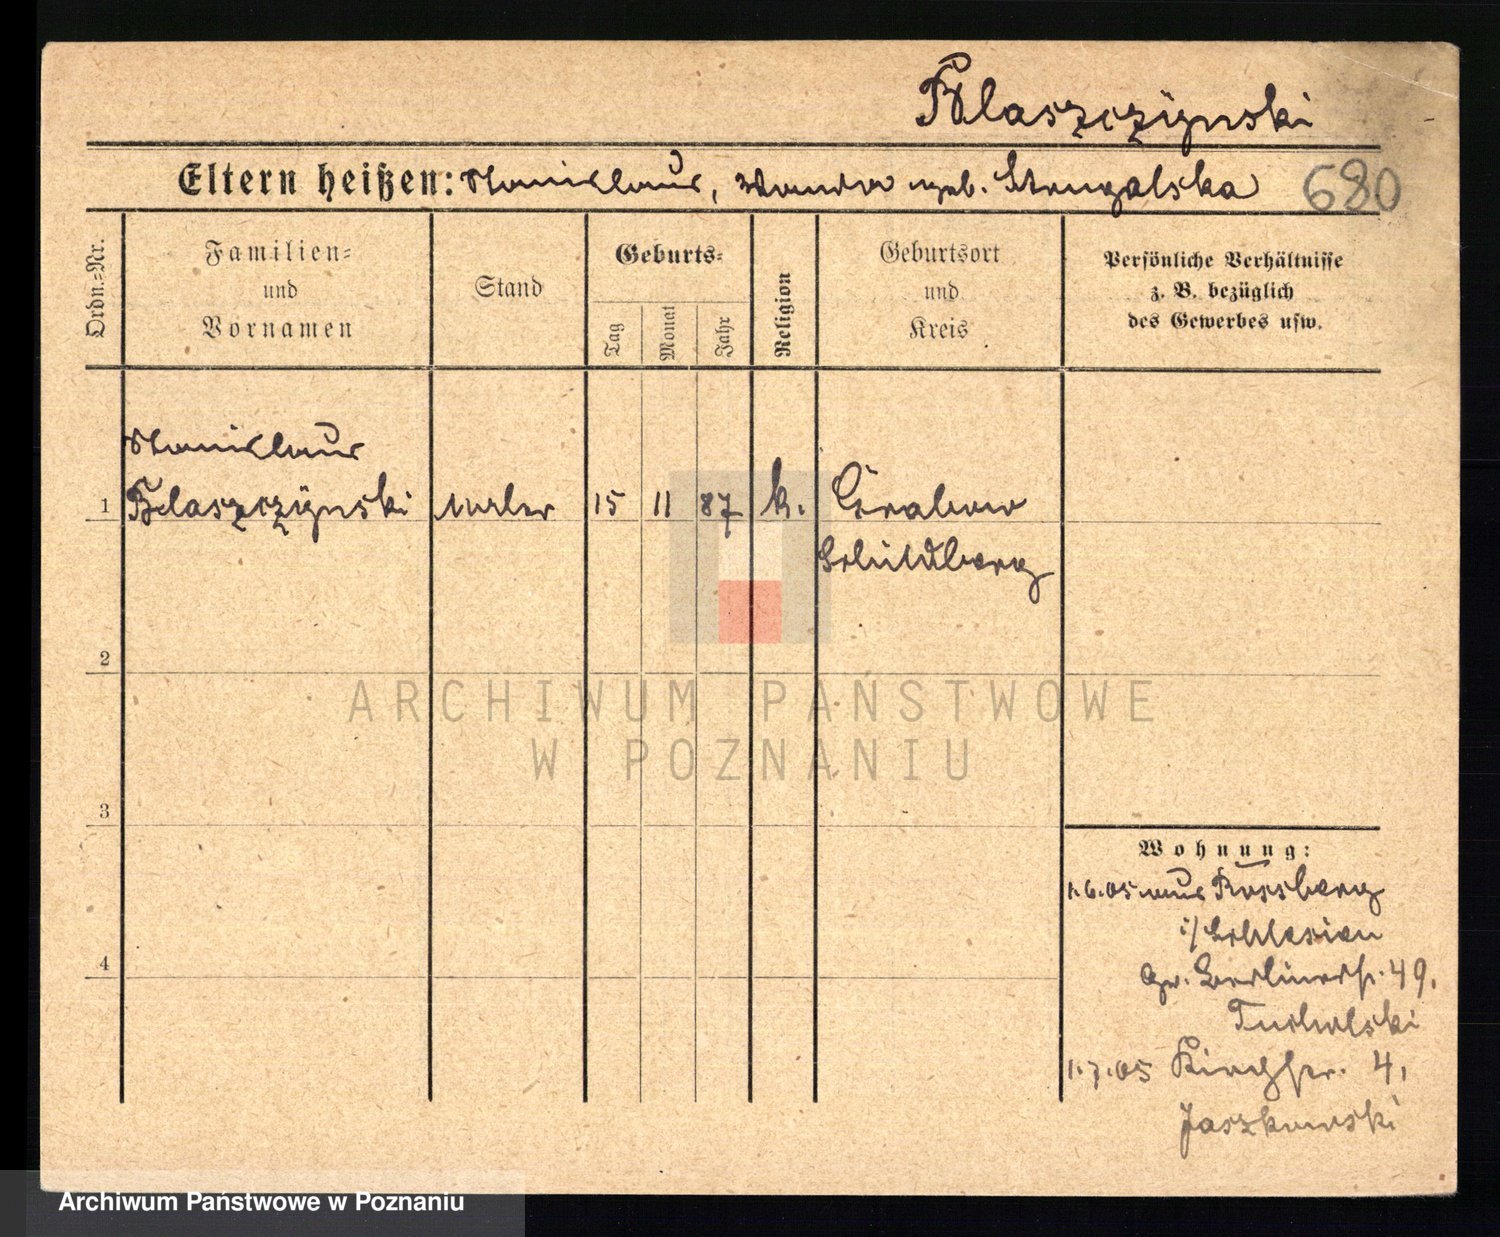 Blaszczÿnski
Eltern heißen: Stanislaus, Wanda geb. Strugalska 680
Ordn.=Nr.
Familien=
und
Vornamen
Stand
Geburts=
Tag
Monat
Jahr
Religion
Geburtsort
und
Kreis
Persönliche Verhältnisse
z. B. bezüglich
des Gewerbes usw.
Stanislaus
1 Blaszczÿnski Maler 15 11 87 k. Grabow
Schildberg
2
3
4
Wohnung:
1.6.05 aus Rossberg
i/ Schlesien
Gr. Berlinerstr. 49.
Tucholski
1.7.05 Ringstr. 4,
Jaszkowski
ARCHIWUM PAŃSTWOWE
W POZNANIU
Archiwum Państwowe w Poznaniu